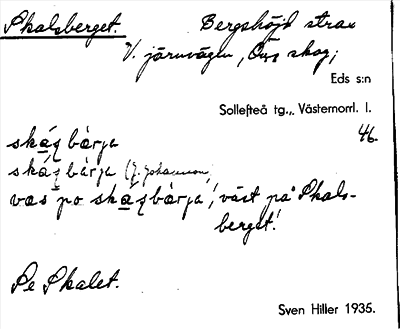 Skalsberget. Bergshöjd strax
V. järnvägen, skog;
Eds s:n
Sollefteå tg., Västernorrl. l.
46.
skáʒbàrja
skáʒbàrja (J. Johansson)
vas po skaʒbàrja!, väst på Skals-
berget!
Se Skalet.
Sven Hiller 1935.